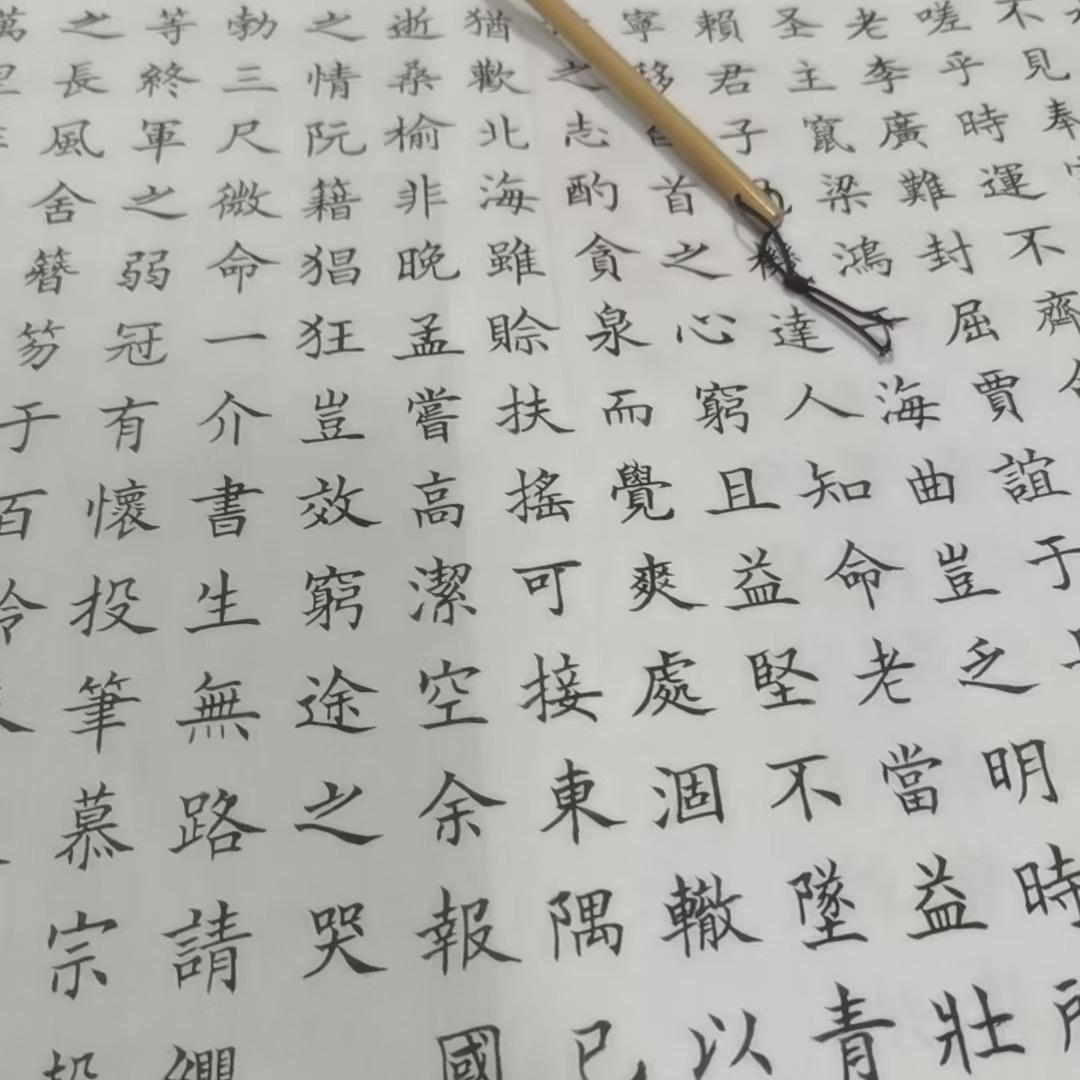 不見奉
嗟乎時運不齊
老李廣難封屈賈誼于
圣主竄梁鴻于海曲豈乏明時所
賴君子見機達人知命老當益壯
寧移白首之心窮且益堅不墜青
之志酌貪泉而覺爽處涸轍以
猶歡北海雖賒扶搖可接東隅已
逝桑榆非晚孟嘗高潔空余報國
之情阮籍猖狂豈效窮途之哭
勃三尺微命一介書生無路請纓
等終軍之弱冠有懷投筆慕宗
之長風舍簪笏于百齡
萬里